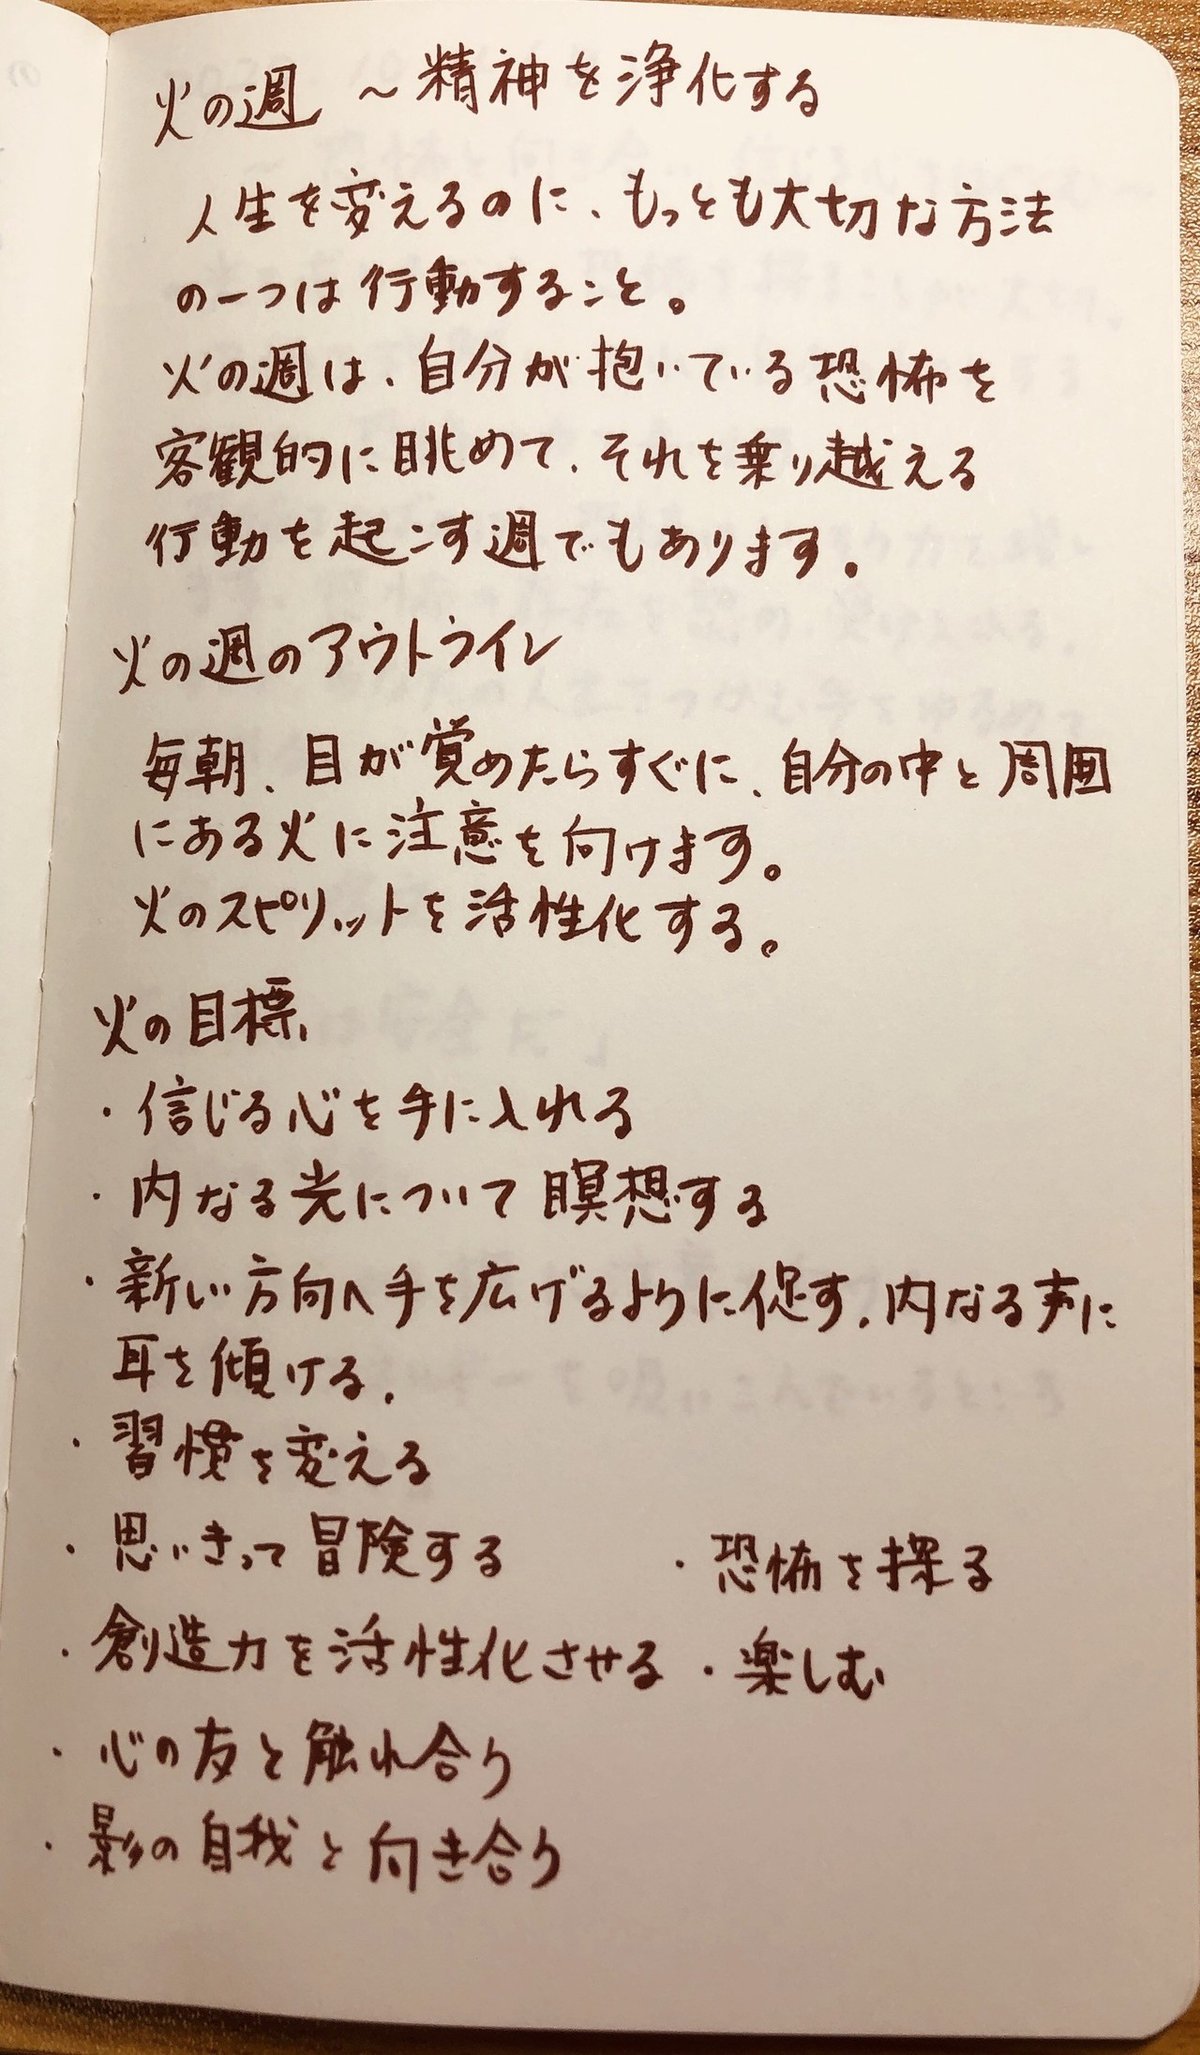 火の週 〜精神を浄化する
人生を変えるのに、もっとも大切な方法
の一つは行動すること。
火の週は、自分が抱いている恐怖を
客観的に眺めて、それを乗り越える
行動を起こす週でもあります。
火の週のアウトライン
毎朝、目が覚めたらすぐに、自分の中と周囲
にある火に注意を向けます。
火のスピリットを活性化する。
火の目標
・信じる心を手に入れる
・内なる光について瞑想する
・新しい方向へ手を広げるように促す、内なる声に
耳を傾ける。
・習慣を変える
・思いきって冒険する ・恐怖を探る
・創造力を活性化させる ・楽しむ
・心の友と触れ合う
・影の自我と向き合う